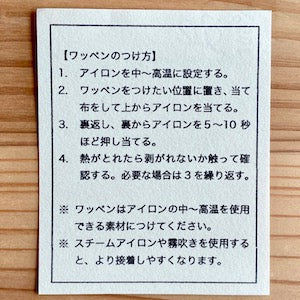 【ワッペンのつけ方】
1. アイロンを中〜高温に設定する。
2. ワッペンをつけたい位置に置き、当て
布をして上からアイロンを当てる。
3. 裏返し、裏からアイロンを5〜10 秒
ほど押し当てる。
4. 熱がとれたら剥がれないか触って確
認する。必要な場合は3を繰り返す。
※ ワッペンはアイロンの中〜高温を使用
できる素材につけてください。
※ スチームアイロンや霧吹きを使用する
と、より接着しやすくなります。